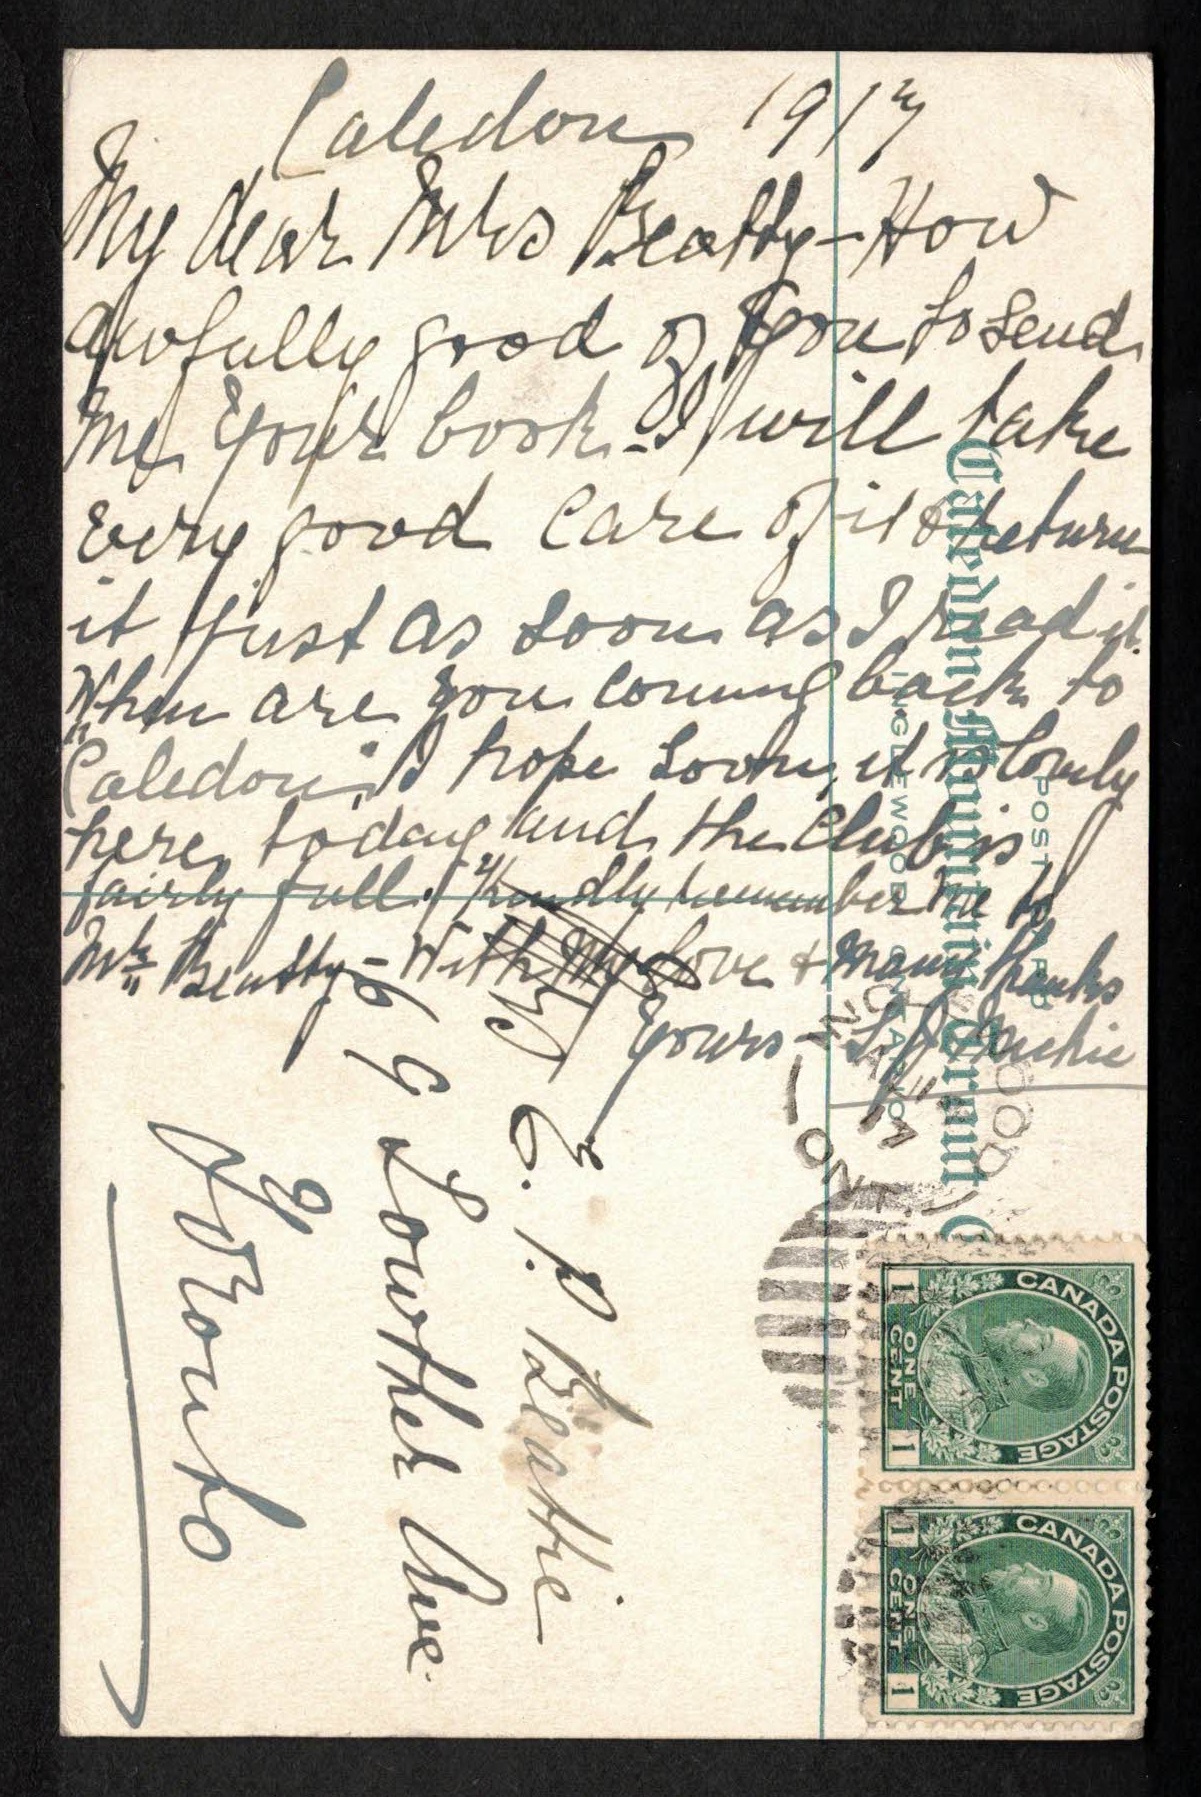 Caledon 1917
My dear Mrs Beatty - How
awfully good of you to send
me your book - I will take
every good care of it & return
it just as soon as I read it.
When are you coming back to
Caledon, I hope soon, it is lovely
here today and the Club is
fairly full. Kindly remember me to
Mr. Beatty - With my love & many thanks
Yours - Michie
E. P. Beattie
69 Lowther Ave
Toronto
POST
Caledon Mountain Trout C
INGLEWOOD ONTARIO
OOD
ONT
CANADA POSTAGE
1 ONE CENT 1
CANADA POSTAGE
1 ONE CENT 1